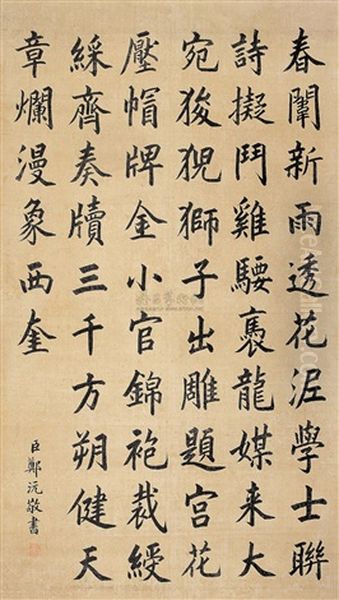 春闈新雨透花泥學士聯
詩擬鬥雞騕褭龍媒来大
宛狻猊獅子出雕題宮花
壓帽牌金小官錦袍裁綬
綵齊奏牘三千方朔健天
章爛漫象西奎
臣鄭沅敬書